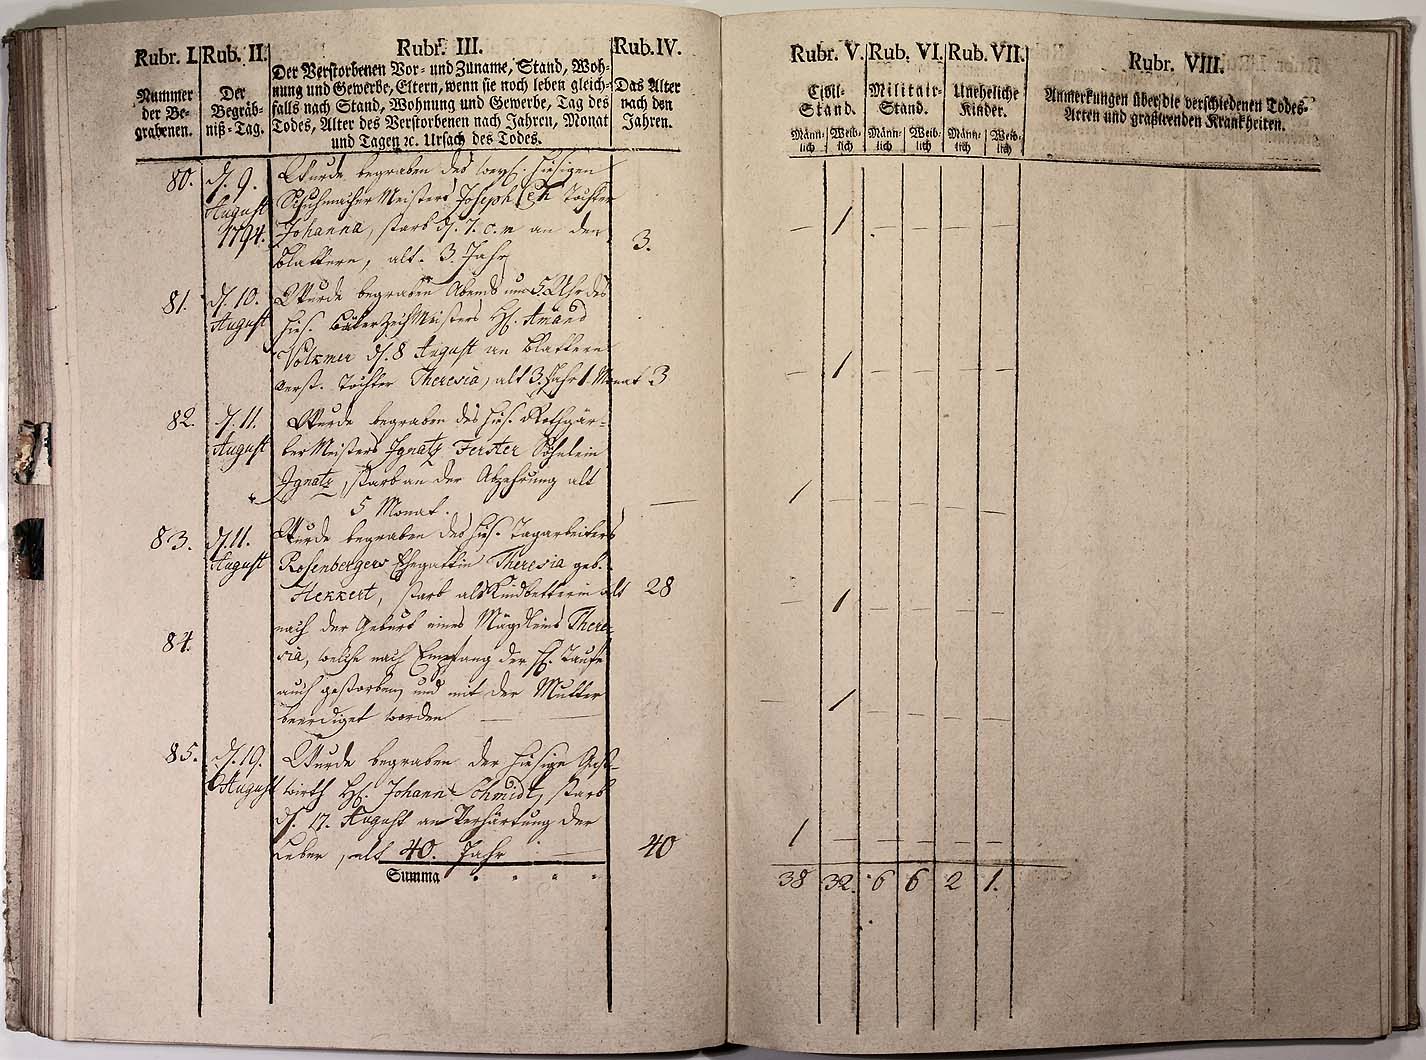 Rubr. I. Rub. II. Rubr. III. Rub. IV.
Nummer der Be-grabenen.
Der Begräb-niß-Tag.
Der Verstorbenen Vor- und Zuname, Stand, Woh-
nung und Gewerbe, Eltern, wenn sie noch leben gleich-
falls nach Stand, Wohnung und Gewerbe, Tag des
Todes, Alter des Verstorbenen nach Jahren, Monat
und Tagen ꝛc. Ursach des Todes.
Das Alter nach den Jahren.
80. d. 9. Wurde begraben des hiesigen
August Schuhmacher Meisters Joseph Tochter
1794. Johanna, starb d. 7. c. m an den 3.
Blattern, alt. 3. Jahr
81. d. 10. Wurde begraben Abends um 5. Uhr des
August hies. Meisters H. Amand
Volkmer d. 8 August an Blattern
verst. Tochter Theresia, alt 3. Jahr 1 Monat 3
82. d. 11. Wurde begraben des hies. Rothgär-
August ber Meisters Ignatz Ferster Söhnlein
Ignatz, starb an der Abzehrung alt
5 Monat. —
83. d. 11. Wurde begraben des hies. Tagarbeiters
August Rosenbergers Ehegattin Theresia geb.
Hekkert, starb als Kindbetterin alt 28
nach der Geburt eines Mägdleins There-
84. sia, welche nach Empfang der h. Taufe
auch gestorben und mit der Mutter
beerdiget worden
85. d. 19. Wurde begraben der hiesige Gast-
August wirth H. Johann Schmidt, starb
d. 17. August an Verhärtung der
Leber, alt 40. Jahr 40
Summa
Rubr. V. Rub. VI. Rub. VII. Rubr. VIII.
Civil-Stand.
Militair-Stand.
Uneheliche Kinder.
Anmerkungen über die verschiedenen Todes-
Arten und graßirenden Krankheiten.
Männ-lich Weib-lich Männ-lich Weib-lich Männ-lich Weib-lich
— 1 — — — —
— 1 — — — —
1 — — — — —
— 1 — — — —
— 1 — — — —
1 — — — — —
38 32. 6 6 2 1.